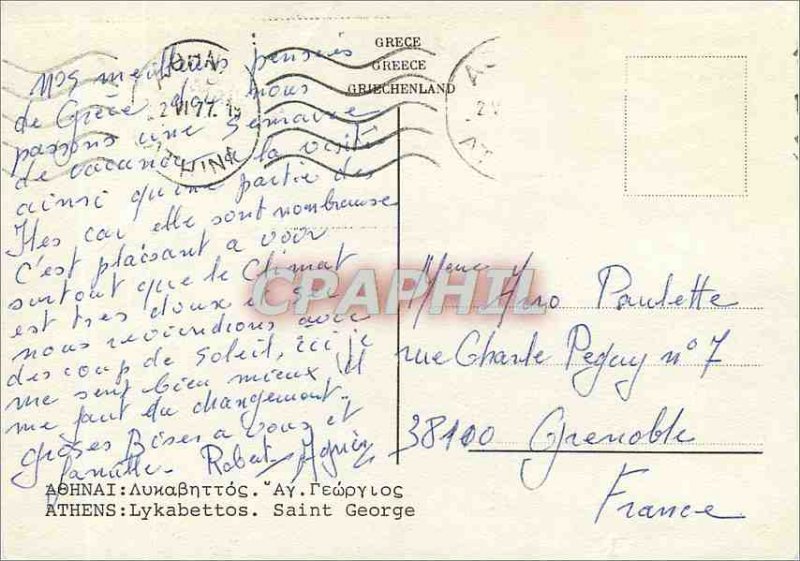 GRECE
GREECE
GRIECHENLAND
Nos meilleurs pensées
de Grèce nous
passons une Semaine
de vacances la visite
ainsi qu'une partie des
Iles car elle sont nombreuse
C'est plaisant a voir
surtout que le Climat
est tres doux et se
nous reviendrions avec
des coup de Soleil, ici je
me sent bien mieux il
me faut du changement.
groses Bises a vous et
famille. Robert Agnès
Aimo Paulette
rue Charle Pegay n° 7
38100 Grenoble
France
CPAPHIL
ΑΘΗΝΑΙ:Λυκαβηττός. Ἅγ.Γεώργιος
ATHENS:Lykabettos. Saint George